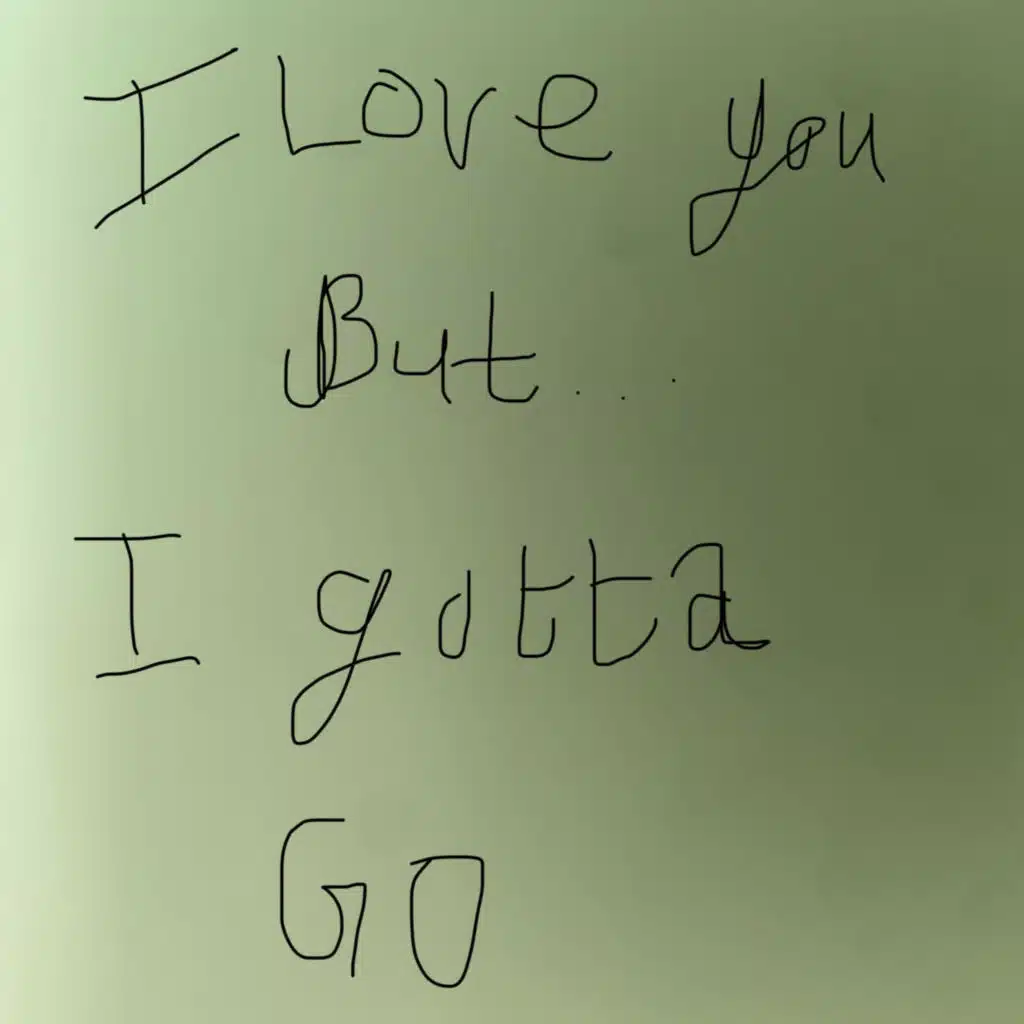 I Love you
But...
I gotta
GO